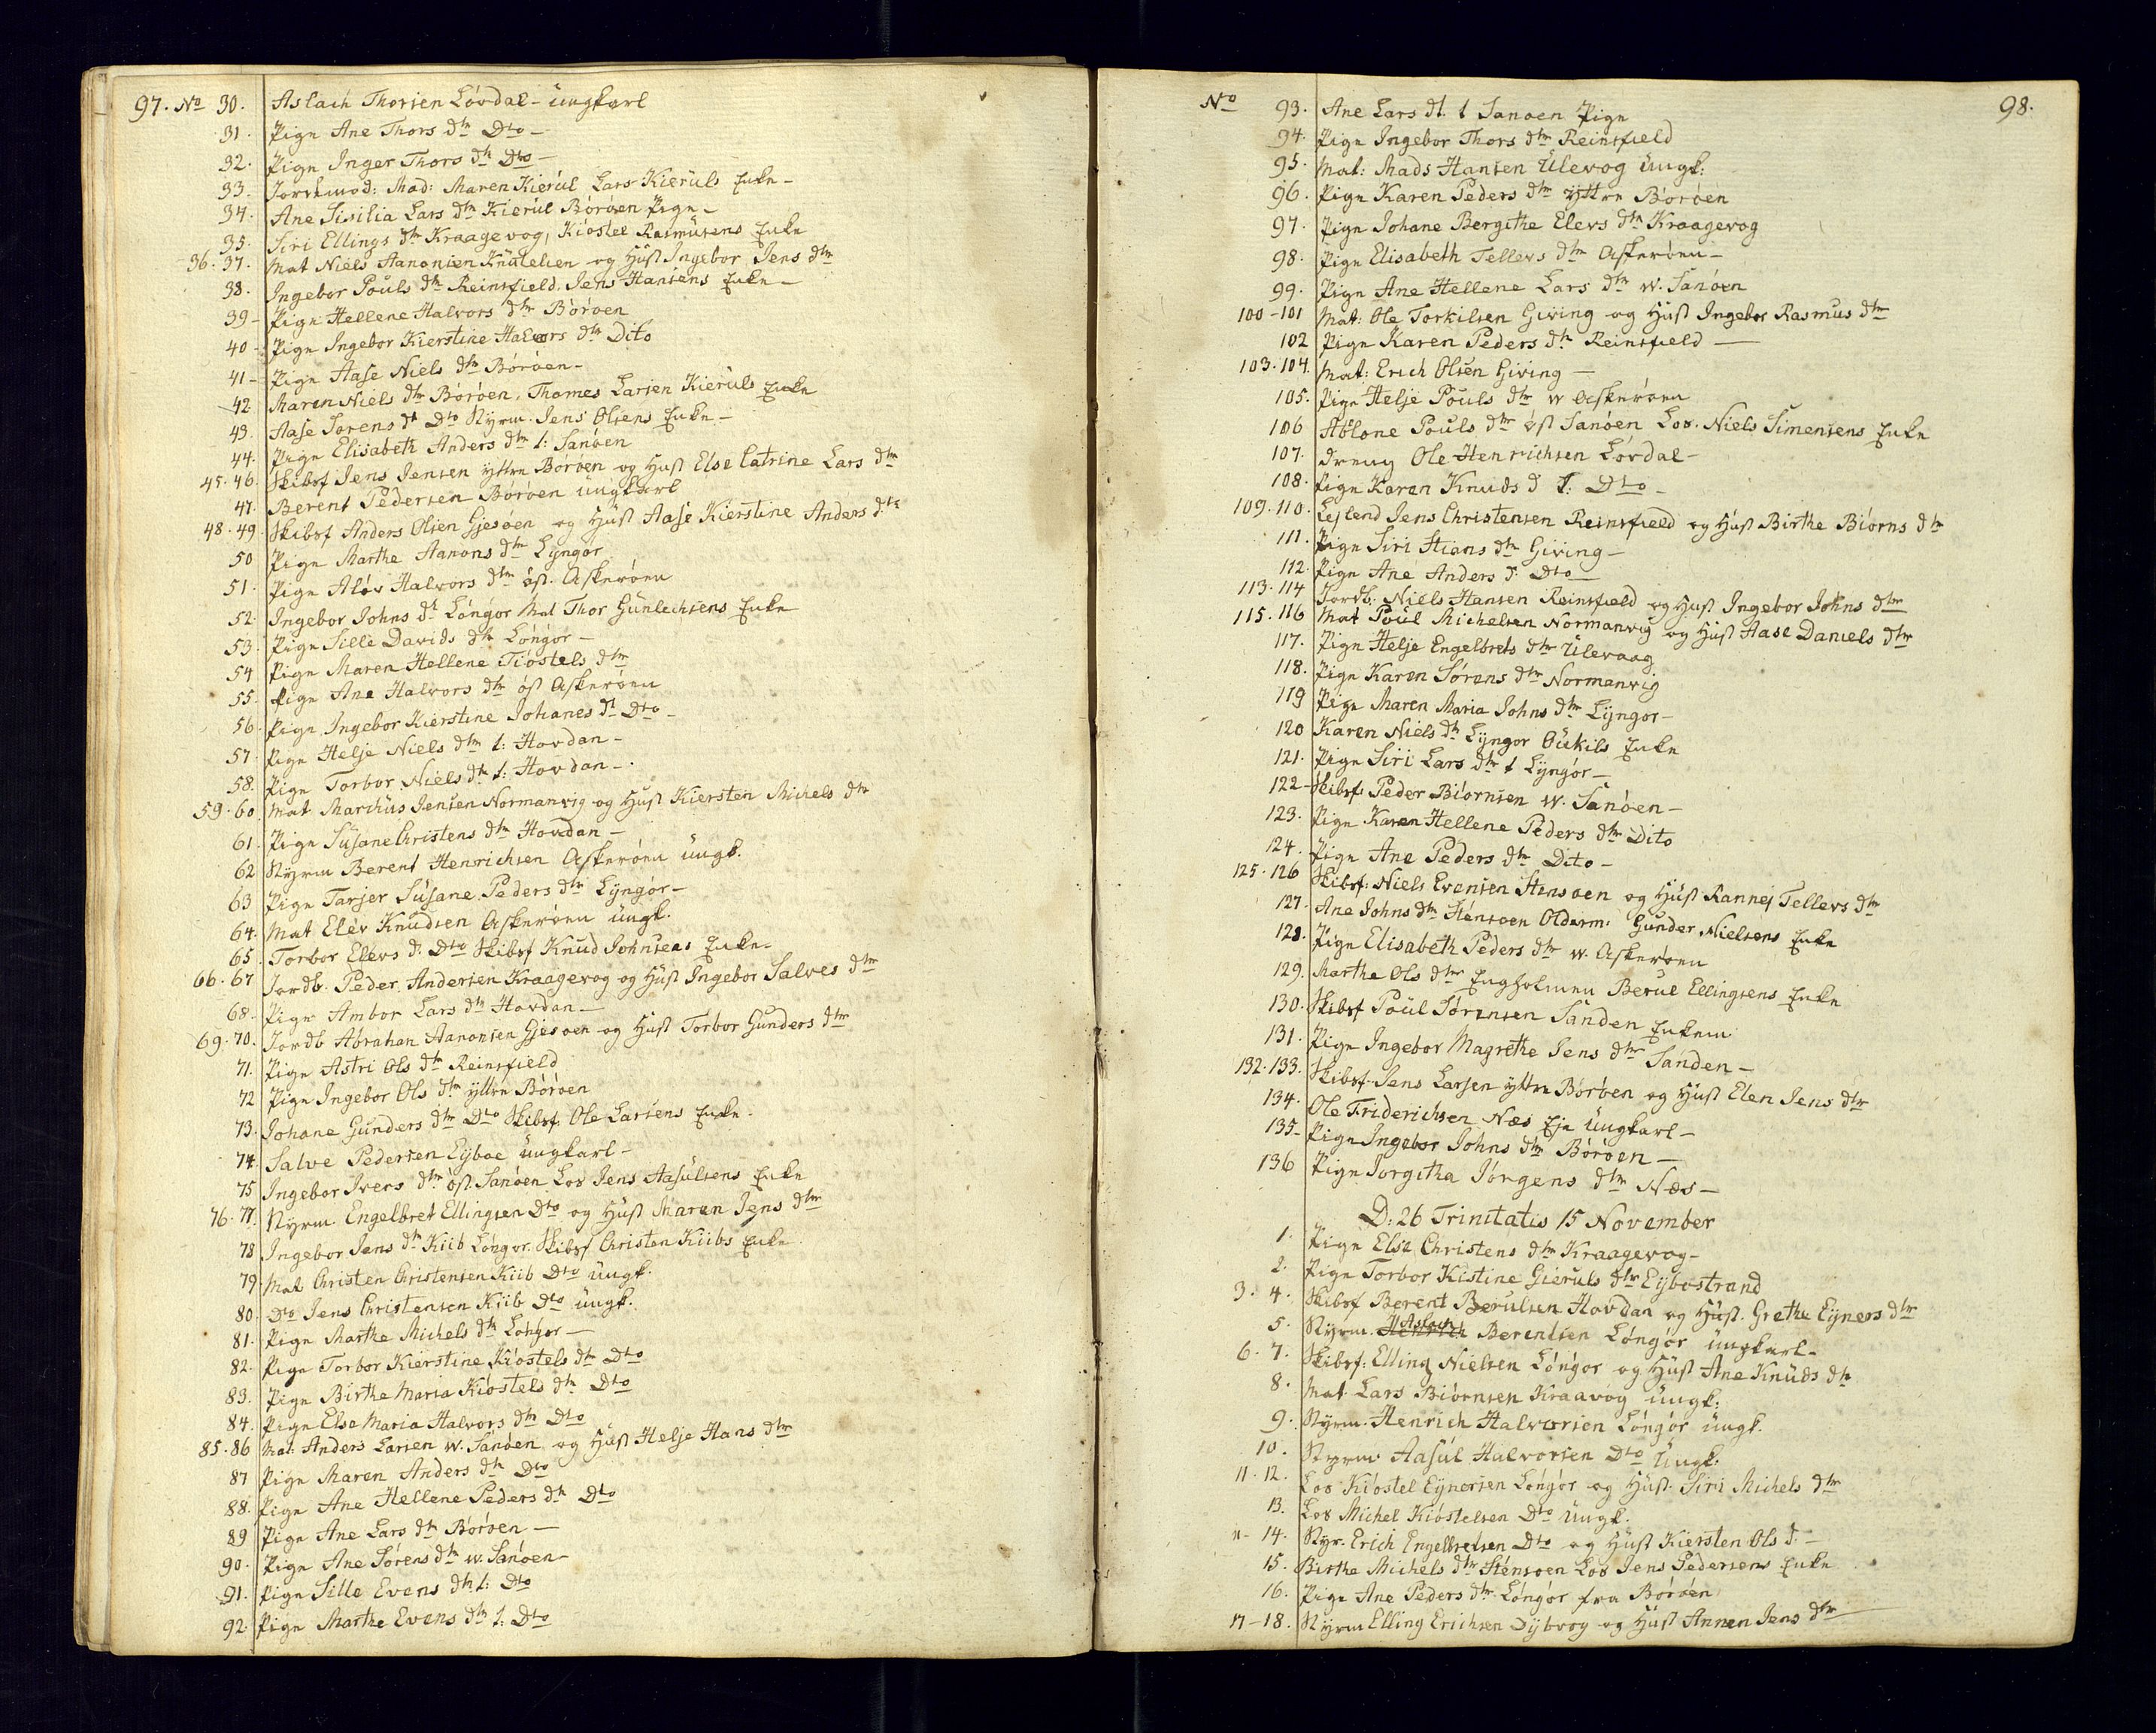 97. No 30. Aslach Thorsen Lövdal - ungkarl
31. Pige Ane Thors dtr Dto -
32. Pige Inger Thors dtr Dto -
33. Jordmod: Mad: Maren Kierul Lars Kieruls Enke -
34. Ane Sisilia Lars dtr Kierul Böröen Pige -
35. Siri Ellings dtr Kraagevog, Kiöstel Rasmusens Enke
36. 37. Mat Niels Aanonsen Knutelsen og Hust Ingebor Jens dtr
38. Ingebor Pouls dtr Reinsfield, Jens Hansens Enke -
39 - Pige Hellene Halvors dtr Böröen
40 - Pige Ingebor Kierstine Halvors dtr Dito
41 - Pige Aase Niels dtr Böröen -
42. Maren Niels dtr Böröen, Thomes Larsen Kieruls Enke
43. Aase Sorens dt Dto Styrm. Jens Olsens Enke -
44. Pige Elisabeth Anders dtr l: Sanöen
45. 46. Skibsf Jens Jensen yttre Boröen og Hust Else Catrine Lars dtr
47. Berent Pedersen Böröen ungkarl
48. 49. Skibsf Anders Olsen Gjesöen og Hust Aase Kierstine Anders dtr
50 Pige Marthe Aanons dtr Lyngor
51. Pige Alöv Halvors dtr öst. Askeröen
52. Ingebor Johns dt Löngor Mat Thor Gunlechsens Enke
53. Pige Sille Davids dtr Löngör -
54 Pige Maren Hellene Tiöstels dtr
55. Pige Ane Halvors dtr öst Askeröen
56. Pige Ingebor Kierstine Johanes dt Dto -
57. Pige Helje Niels dtr l: Hovdan -
58. Pige Torbor Niels dtr l: Hovdan -.
59. 60. Mat Marchus Jensen Normanvig og Hust Kiersten Michels dtr
61. Pige Susane Christens dtr Hovdan -
62 Styrm Berent Henrichsen Askeröen ungk.
63 Pige Tarjer Susane Peders dtr Lyngör -
64. Mat Elev Knudsen Askeröen ungk.
65. Torbor Elevs d. Dto Skibsf Knud Johnsens Enke -
66. 67 Jordb. Peder Andersen Kraagevog og Hust Ingebor Salves dtr
68. Pige Ambor Lars dtr Hovdan -
69. 70. Jordb Abrahan Aanonsen Gjesoen og Hust Torbor Gunders dtr
71. Pige Astri Ols dtr Reinsfield
72 Pige Ingebor Ols dtr yttre Böröen
73. Johane Gunders dtr Dto Skibsf. Ole Larsens Enke -
74. Salve Pedersen Eyboe ungkarl -
75 Ingebor Ivers dtr öst. Sanöen Los Jens Aasulsens Enke
76. 77. Styrm. Engelbret Ellingsen Dto og Hust Maren Jens dtr
78 Ingebor Jens dtr Kiib Löngor. Skibsf Christen Kiibs Enke.
79. Mat Christen Christensen Kiib Dto ungk.
80. Dto Jens Christensen Kiib Dto ungk.
81. Pige Marthe Michels dtr Löngör -
82. Pige Torbor Kierstine Kiöstels dtr Dto
83. Pige Birthe Maria Kiöstels dtr Dto
84. Pige Else Maria Halvors dtr Dto
85. 86 Mat. Anders Larsen w. Sanöen og Hust Helje Hans dtr
87 Pige Maren Anders dtr Dto
88. Pige Ane Hellene Peders dtr Dto
89 Pige Ane Lars dtr Böröen -
90. Pige Ane Sörens dtr w. Sanöen -
91. Pige Sille Evens dtr l: Dto
92. Pige Marthe Evens dtr l: Dto
98.
No 93. Ane Lars dt. l Sanoen Pige
94. Pige Ingebor Thors dtr Reinsfield
95. Mat: Mads Hansen Ulevog ungk:
96. Pige Karen Peders dtr yttre Böröen
97. Pige Johane Bergithe Elevs dtr Kraagevog
98. Pige Elisabeth Tellevs dtr Askeröen -
99. Pige Ane Hellene Lars dtr w. Sanöen
100 - 101 Mat: Ole Torkilsen Giving og Hust Ingebor Rasmus dtr
102 Pige Karen Peders dtr Reinsfield -
103. 104. Mat: Erich Olsen Giving -
105. Pige Helje Pouls dtr w Askeröen
106 Ablone Pouls dtr öst Sanöen Los. Niels Simensens Enke
107. Dreng Ole Henrichsen Lövdal -
108. Pige Karen Knuds d l: Dto -
109. 110. Lejlend Jens Christensen Reinsfield og Hust Birthe Biörns dtr
111. Pige Siri Stians dtr Giving -
112. Pige Ane Anders d. Dto
113. 114 Jordb: Niels Hansen Reinsfield og Hust Ingebor Johns dtr
115. 116 Mat Poul Michelsen Normanvig og Hust Aase Daniels dtr
117. Pige Helje Engelbrets dtr Ulevaag
118. Pige Karen Sörens dtr Normanvig
119 Pige Maren Maria Johns dtr Lyngor -
120 Karen Niels dtr Lyngor Oukils Enke
121. Pige Siri Lars dtr l Lyngör -
122 - Skibsf: Peder Biörnsen w. Sanöen -
123. Pige Karen Hellene Peders dtr Dito
124. Pige Ane Peders dtr Dito -
125. 126 Skibsf: Niels Evensen Stensoen og Hust Rannej Tellevs dtr
127. Ane Johns dtr Stensoen Olderm: Gunder Nielsens Enke
128. Pige Elisabeth Peders dtr w. Askeröen
129. Marthe Ols dtr Engholmen Berul Ellingsens Enke
130. Skibsf Poul Sörensen Sanden Enkem
131. Pige Ingebor Magrethe Jens dtr Sanden -
132. 133. Skibsf. Jens Larsen yttre Böröen og Hust Elen Jens dtr
134. Ole Friderichsen Næs Eje ungkarl -
135 - Pige Ingebor Johns dtr Böröen -
136 Pige Jorgitha Jörgens dtr Næs -
D: 26 Trinitatis 15 November
1. Pige Else Christens dtr Kraagevog -
2. Pige Torbor Kistine Gieruls dtr Eybostrand
3. 4. Skibsf Berent Berulsen Hovdan og Hust. Grethe Eyners dtr
5. Styrm. Aslach Berentsen Löngör ungkarl -
6. 7. Skibsf: Elling Nielsen Löngor og Hust Ane Knuds dtr
8. Mat Lars Biörnsen Kraavog ungk:
9. Styrm. Henrich Halvorsen Löngör ungk.
10. Styrm Aasul Halvorsen Dto Ungk:
11. 12. Los Kiöstel Eynersen Löngör og Hust. Siri Michels dtr
13. Los Michel Kiöstelsen Dto Ungk.
11 - 14. Styr. Erich Engelbretsen Dto og Hust Kiersten Ols d. -
15. Birthe Michels dtr Stensoen Los Jens Pedersens Enke
16. Pige Ane Peders dtr Löngör fra Böröen
17 - 18. Styrm Elling Erichsen Dybvog og Hust Annen Jens dtr